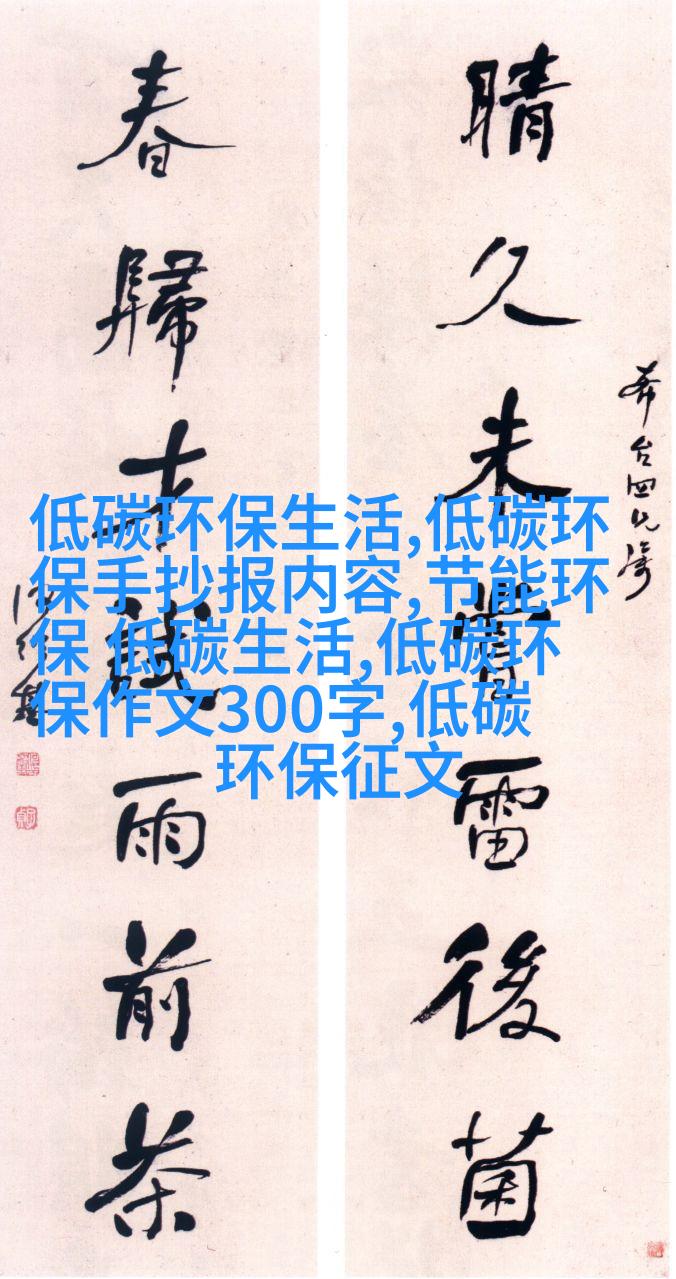 晴久未嘗雷後菌
春歸才試雨前茶
低碳环保生活,低碳环
保手抄报内容,节能环
保 低碳生活,低碳环
保作文300字,低碳
环保征文